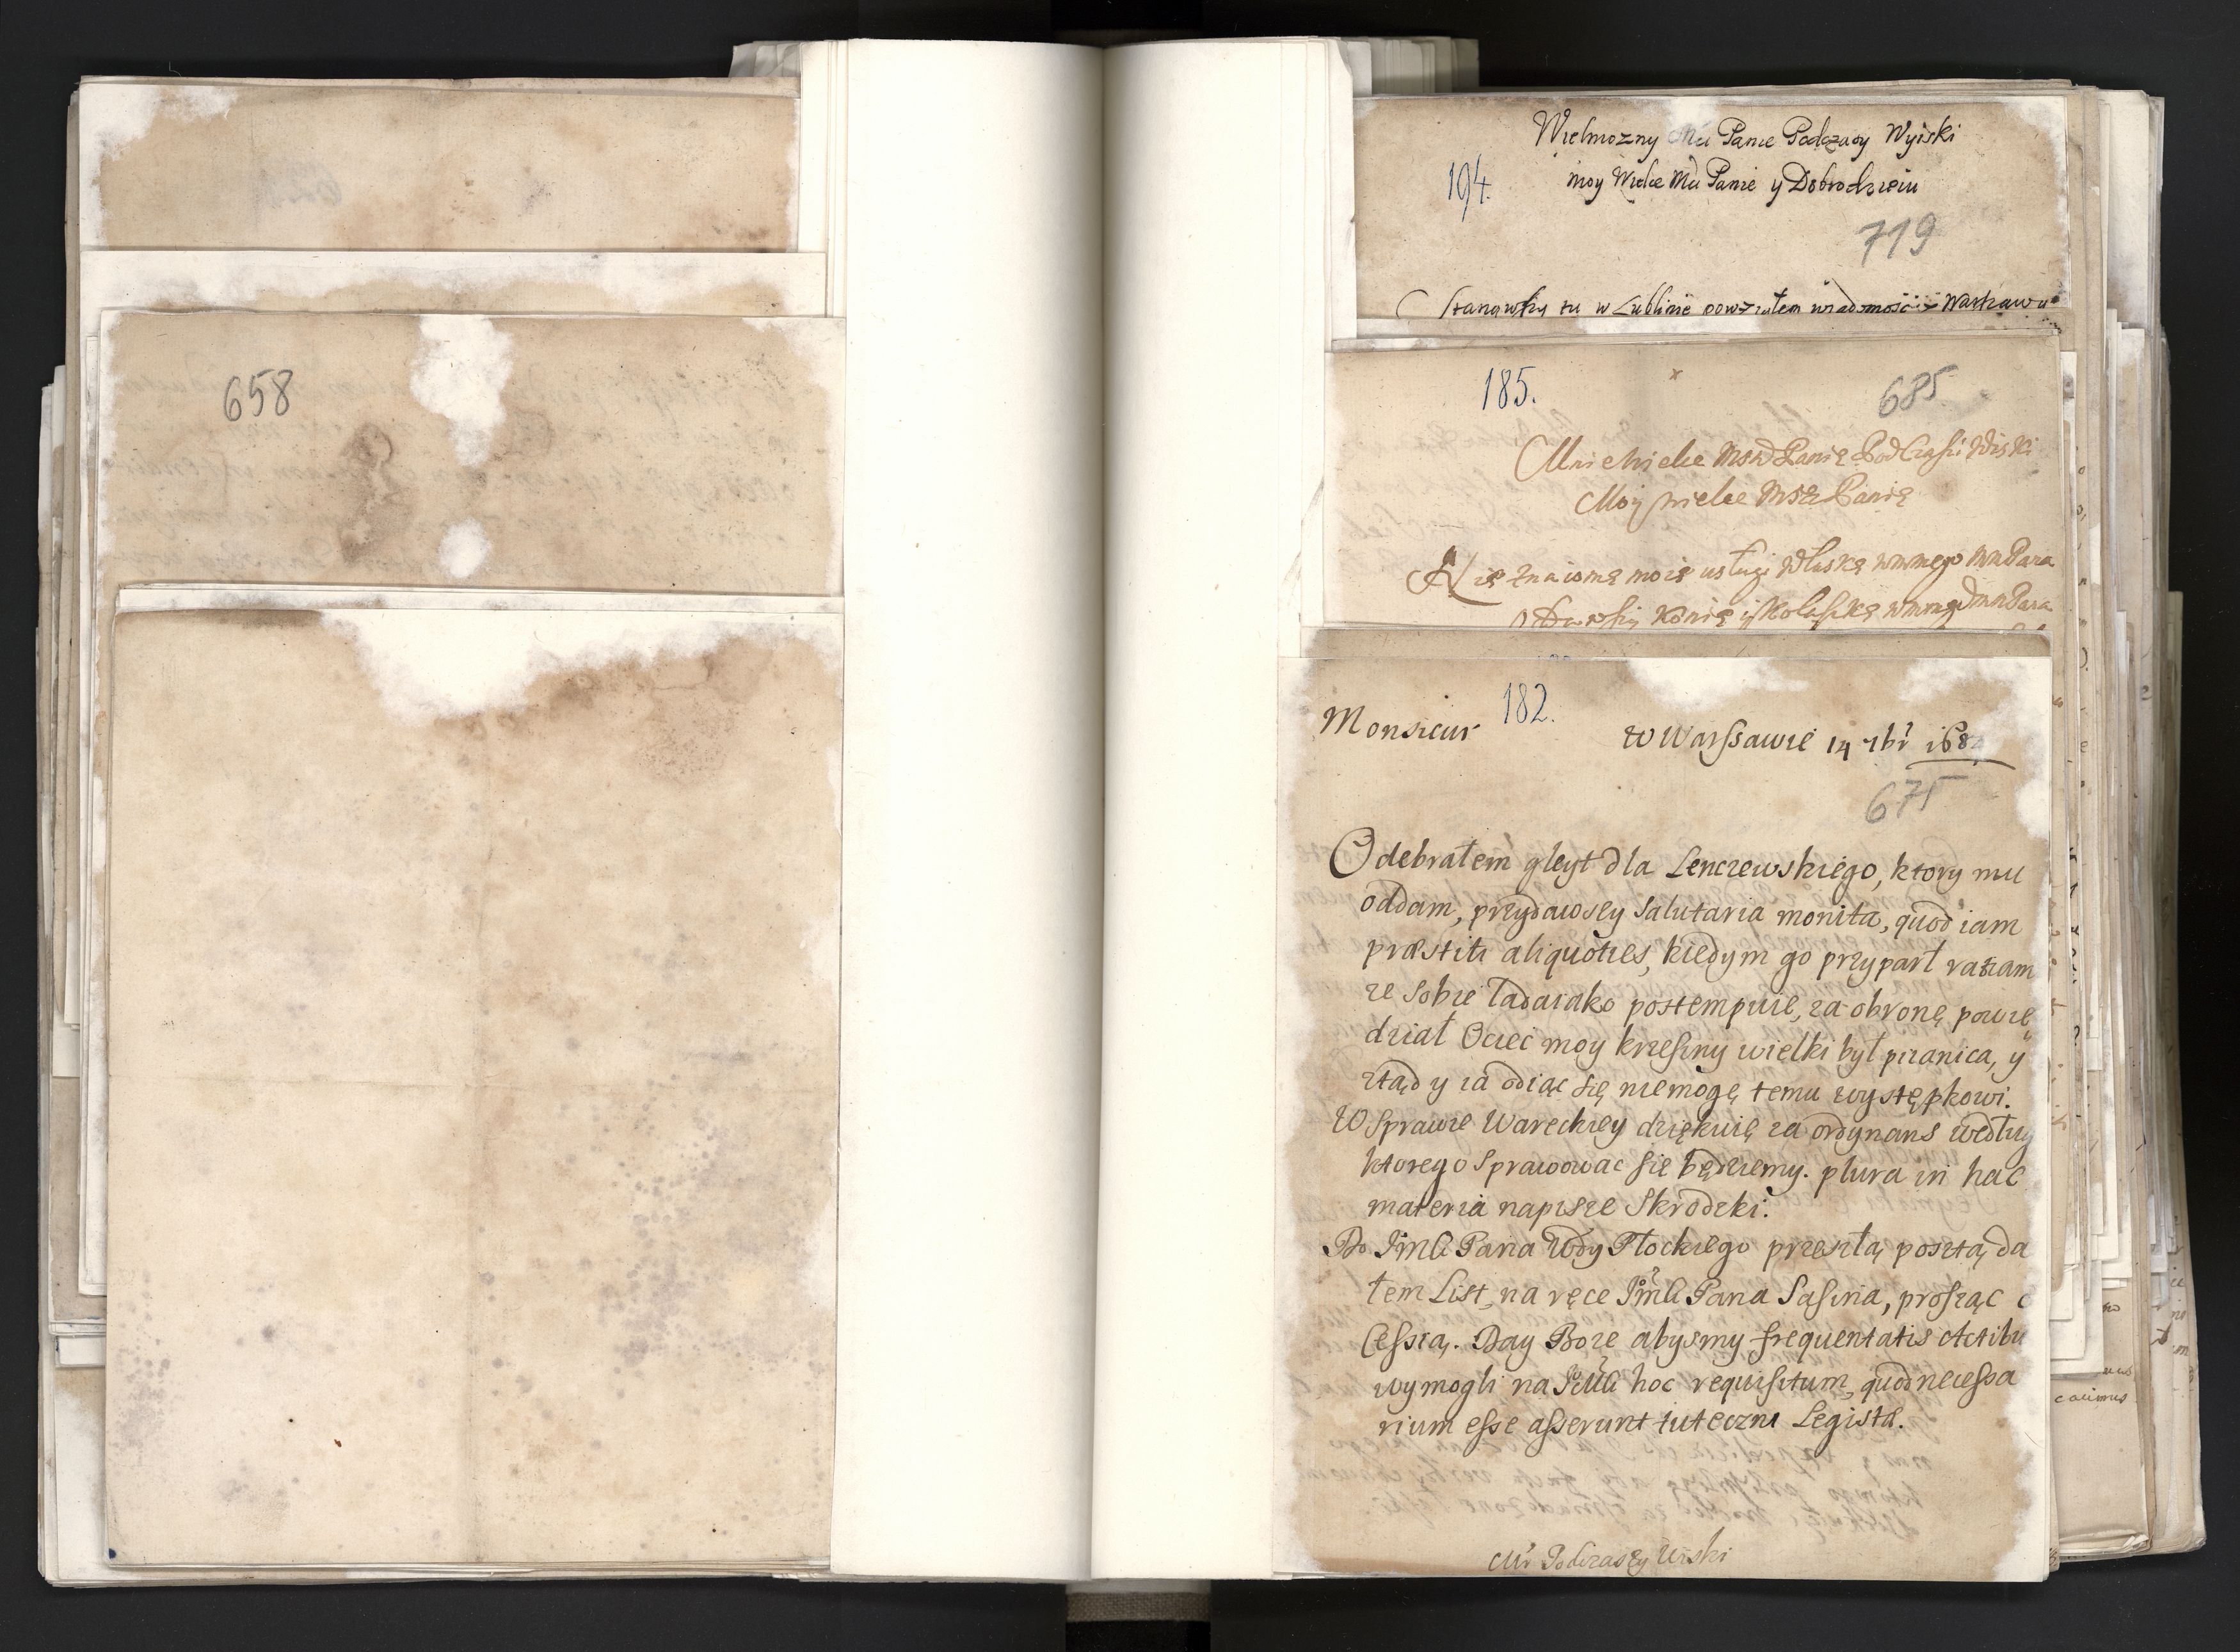 658
Wielmozny Mci Panie Podczaszy Wyiski
194.
moy Wielce Mci Panie y Dobrodzieiu
719
Stanąwszy tu w Lublinie powziąłem wiadomosc z Warszawy
185.
685.
Moy wielce Panie
usługi
182.
Monsieur
W Warssawie 14 7br 168
675
Odebrałem gleyt dla Lenczewskiego, ktory mu
oddam, przydawszy Salutaria monita, quod iam
præstiti aliquoties, kiedym go przyparł
ze Sobie ladaiako postempuie, za obronę powie
dział Ociec moy krzesny wielki był pianica, y
ztąd y ia odiąc się niemogę temu występkowi.
W Sprawie Wareckiey dziękuię za ordynans według
ktorego Sprawowac się będziemy. plura in hac
materia napisze Skrodzki.
Do Jmci Pana Wdy Płockiego przeszłą posztą da
łem List, na ręce Jmci Pana Sasina, prosząc o
Cessią. Day Boze abysmy frequentatis Actibu
wymogli na Jmci hoc requisitum, quod necessa
rium esse asserunt tuteczni Legistæ.
Mr Podczaszy Wiski